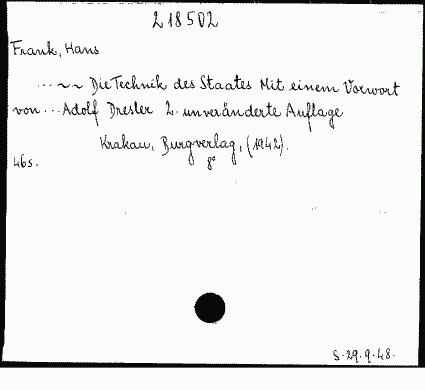 218502
Frank, Hans
... ~~ Die Technik des Staates Mit einem Vorwort
von ... Adolf Dresler 2. unveränderte Auflage
Krakau, Burgverlag, (1942).
46s. 8°
S. 29.9.48.